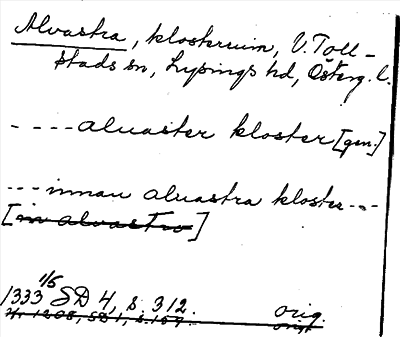 Alvastra, klosterruin, V. Toll-
stads sn, Lysings hd, Österg. l.
---- aluaster kloster [gen.]
--- innan aluastra kloster ---
[in alvastro]
1333 1/5 SD 4, s. 312. orig.
1208, SD 1, s. 157. orig.